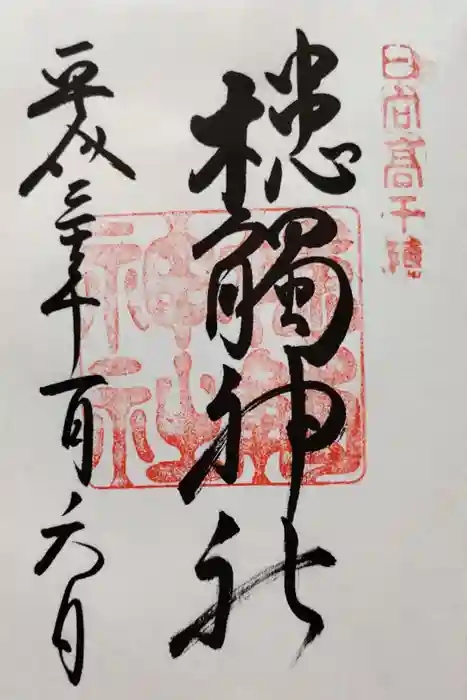 日向高千穂
槵觸神社
平成三十年一月六日